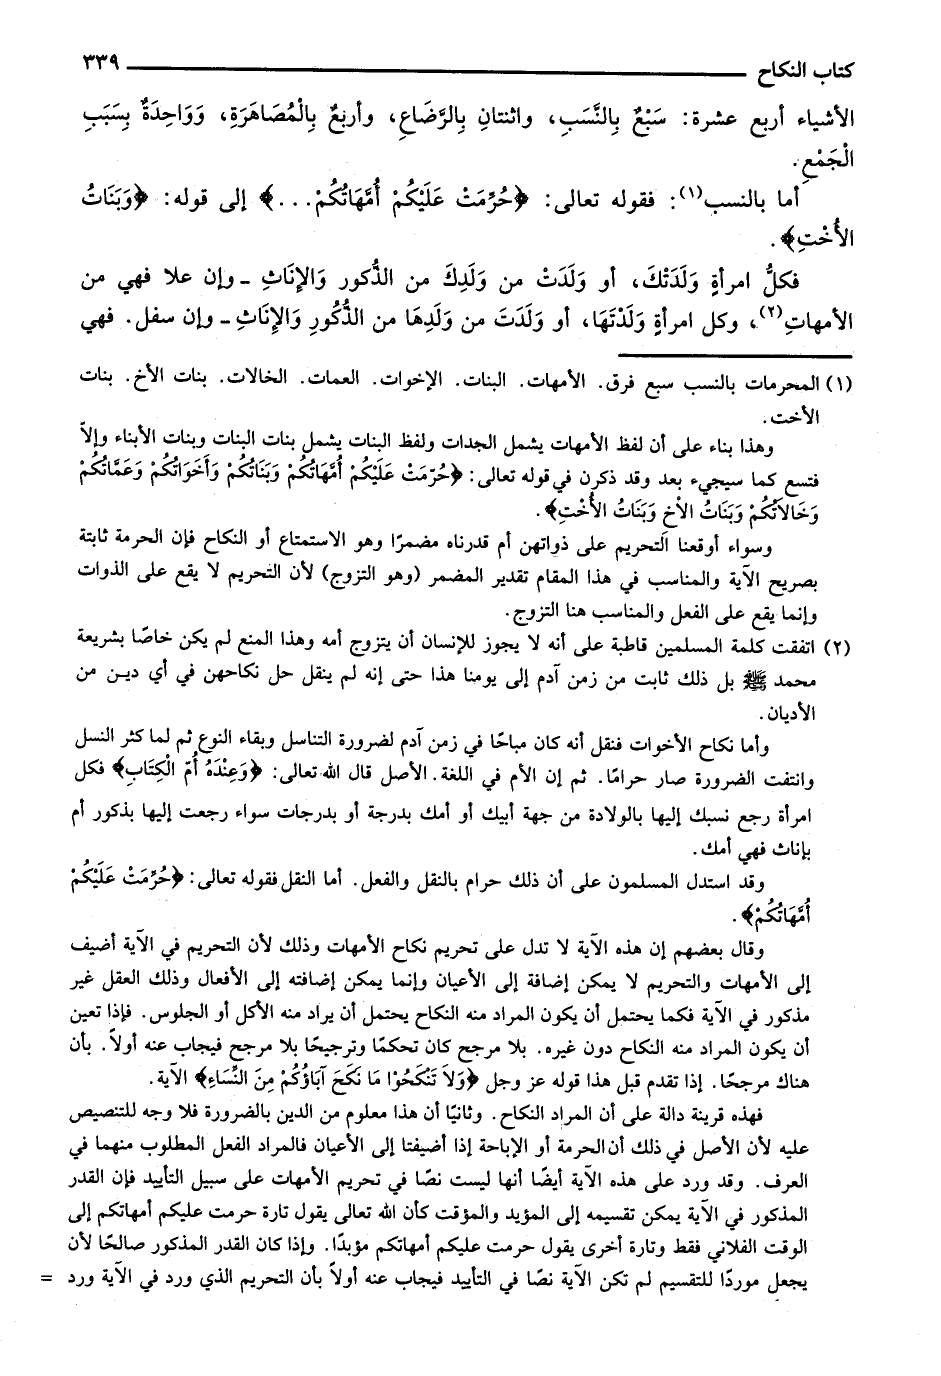 كتاب النكاح ٣٣٩
الأشياء أربع عشرة: سَبْعٌ بِالنَّسَبِ، واثنتانِ بِالرَّضَاعِ، وأربَعٌ بِالْمُصَاهَرَةِ، وَوَاحِدَةٌ بِسَبَبِ
الْجَمْعِ.
أما بالنسب(١): فقوله تعالى: ﴿حُرِّمَتْ عَلَيْكُمْ أُمَّهَاتُكُمْ...﴾ إلى قوله: ﴿وَبَنَاتُ
الأُخْتِ﴾.
فكلُّ امرأةٍ وَلَدَتْكَ، أو وَلَدَتْ من وَلَدِكَ من الذُّكور وَالإِنَاثِ - وإن علا فهي من
الأمهاتِ(٢)، وكل امرأةٍ وَلَدْتَهَا، أو وَلَدَتَ من وَلَدِهَا من الذُّكُورِ وَالإِنَاثِ - وإن سفل. فهي
(١) المحرمات بالنسب سبع فرق. الأمهات. البنات. الإخوات. العمات. الخالات. بنات الأخ. بنات
الأخت.
وهذا بناء على أن لفظ الأمهات يشمل الجدات ولفظ البنات يشمل بنات البنات وبنات الأبناء وإلاّ
فتسع كما سيجيء بعد وقد ذكرن في قوله تعالى: ﴿حُرّمَتْ عَلَيْكُمْ أُمَّهَاتُكُمْ وَبَنَاتُكُمْ وَأَخَوَاتُكُمْ وَعَمَّاتُكُمْ
وَخَالاَتُكُمْ وَبَنَاتُ الأخِ وَبَنَاتُ الأُخْتِ﴾.
وسواء أوقعنا التحريم على ذواتهن أم قدرناه مضمرًا وهو الاستمتاع أو النكاح فإن الحرمة ثابتة
بصريح الآية والمناسب في هذا المقام تقدير المضمر (وهو التزوج) لأن التحريم لا يقع على الذوات
وإنما يقع على الفعل والمناسب هنا التزوج.
(٢) اتفقت كلمة المسلمين قاطبة على أنه لا يجوز للإنسان أن يتزوج أمه وهذا المنع لم يكن خاصًا بشريعة
محمد ﷺ بل ذلك ثابت من زمن آدم إلى يومنا هذا حتى إنه لم ينقل حل نكاحهن في أي ديـن من
الأديان.
وأما نكاح الأخوات فنقل أنه كان مباحًا في زمن آدم لضرورة التناسل وبقاء النوع ثم لما كثر النسل
وانتفت الضرورة صار حرامًا. ثم إن الأم في اللغة. الأصل قال الله تعالى: ﴿وَعِنْدَهُ أُمّ الْكِتَابِ﴾ فكل
امرأة رجع نسبك إليها بالولادة من جهة أبيك أو أمك بدرجة أو بدرجات سواء رجعت إليها بذكور أم
بإناث فهي أمك.
وقد استدل المسلمون على أن ذلك حرام بالنقل والفعل. أما النقل فقوله تعالى: ﴿حُرِّمَتْ عَلَيْكُمْ
أُمَّهَاتُكُمْ﴾.
وقال بعضهم إن هذه الآية لا تدل على تحريم نكاح الأمهات وذلك لأن التحريم في الآية أضيف
إلى الأمهات والتحريم لا يمكن إضافة إلى الأعيان وإنما يمكن إضافته إلى الأفعال وذلك العقل غير
مذكور في الآية فكما يحتمل أن يكون المراد منه النكاح يحتمل أن يراد منه الأكل أو الجلوس. فإذا تعين
أن يكون المراد منه النكاح دون غيره. بلا مرجح كان تحكمًا وترجيحًا بلا مرجح فيجاب عنه أولاً. بأن
هناك مرجحًا. إذا تقدم قبل هذا قوله عز وجل ﴿وَلاَ تَنْكَحُوْا مَا نَكَحَ آبَاؤُكُمْ مِنَ النِّسَاءِ﴾ الآية.
فهذه قرينة دالة على أن المراد النكاح. وثانيًا أن هذا معلوم من الدين بالضرورة فلا وجه للتنصيص
عليه لأن الأصل في ذلك أن الحرمة أو الإباحة إذا أضيفتا إلى الأعيان فالمراد الفعل المطلوب منهما في
العرف. وقد ورد على هذه الآية أيضًا أنها ليست نصًا في تحريم الأمهات على سبيل التأبيد فإن القدر
المذكور في الآية يمكن تقسيمه إلى المؤبد والمؤقت كأن الله تعالى يقول تارة حرمت عليكم أمهاتكم إلى
الوقت الفلاني فقط وتارة أخرى يقول حرمت عليكم أمهاتكم مؤبدًا. وإذا كان القدر المذكور صالحًا لأن
يجعل موردًا للتقسيم لم تكن الآية نصًا في التأبيد فيجاب عنه أولاً بأن التحريم الذي ورد في الآية ورد =